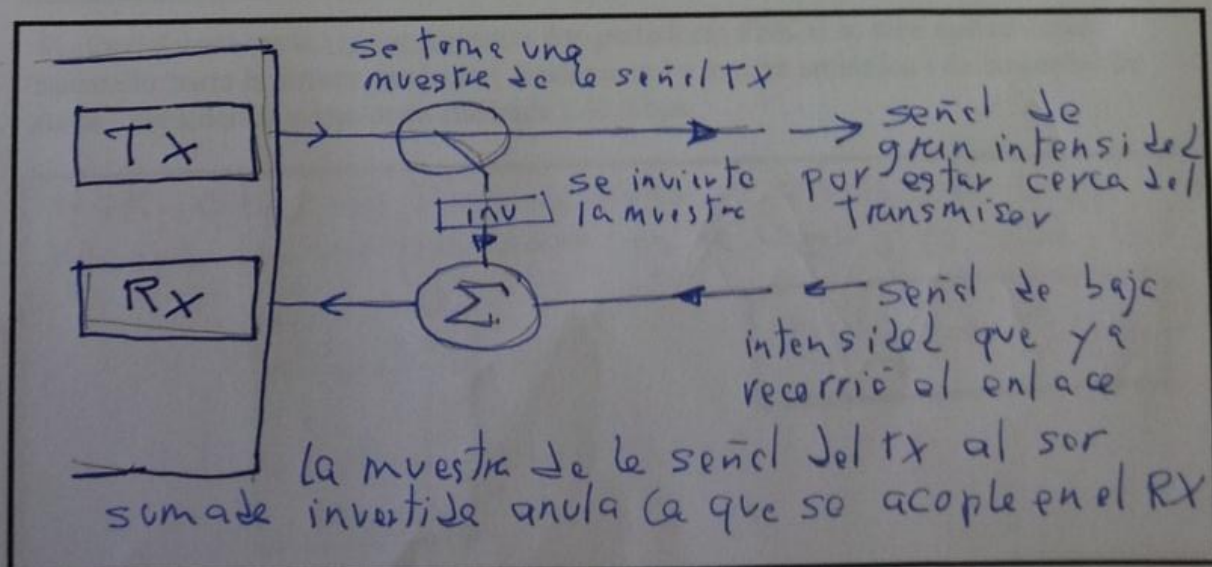 se toma una
muestra de la señal TX
TX
señal de
gran intensidad
por estar cerca del
transmisor
se invierte
la muestra
inv
RX
Σ
señal de baja
intensidad que ya
recorrió el enlace
La muestra de la señal del TX al ser
sumada invertida anula la que se acople en el RX